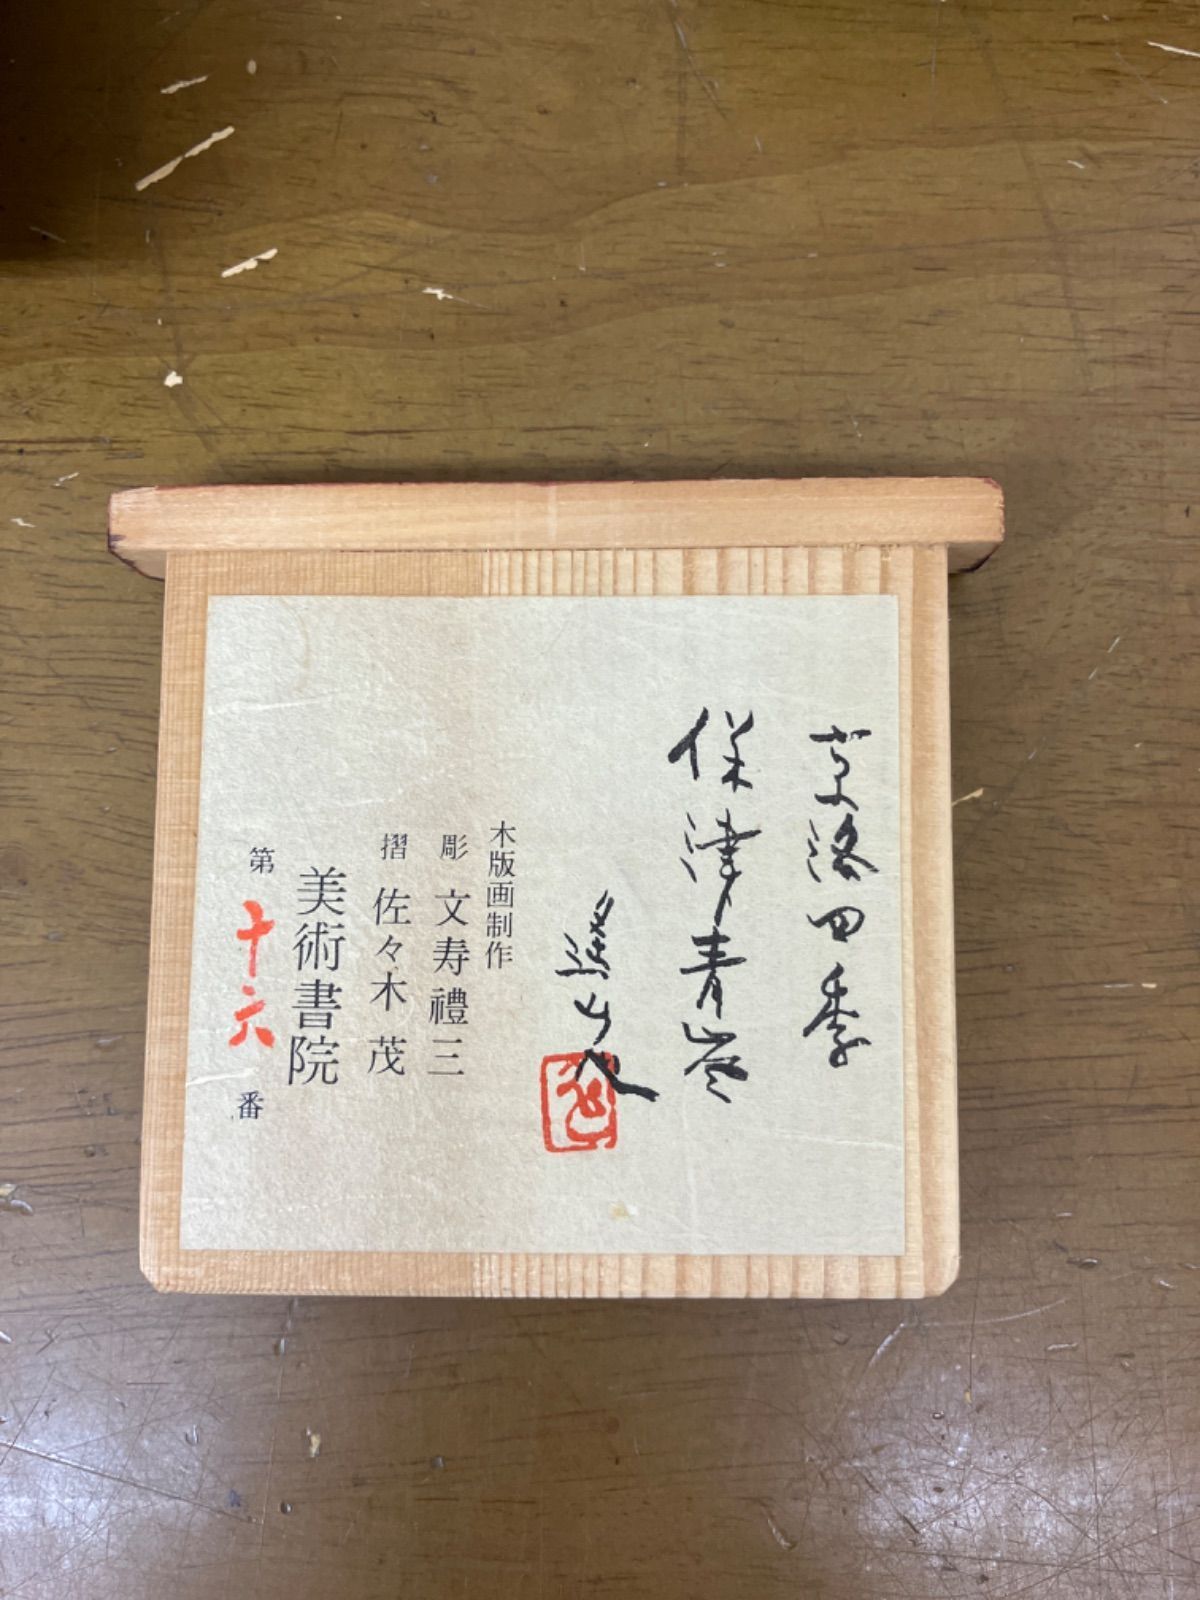 京洛四季
保津青嵐
木版画制作
彫 文寿禮三
摺 佐々木 茂
美術書院
第十六番